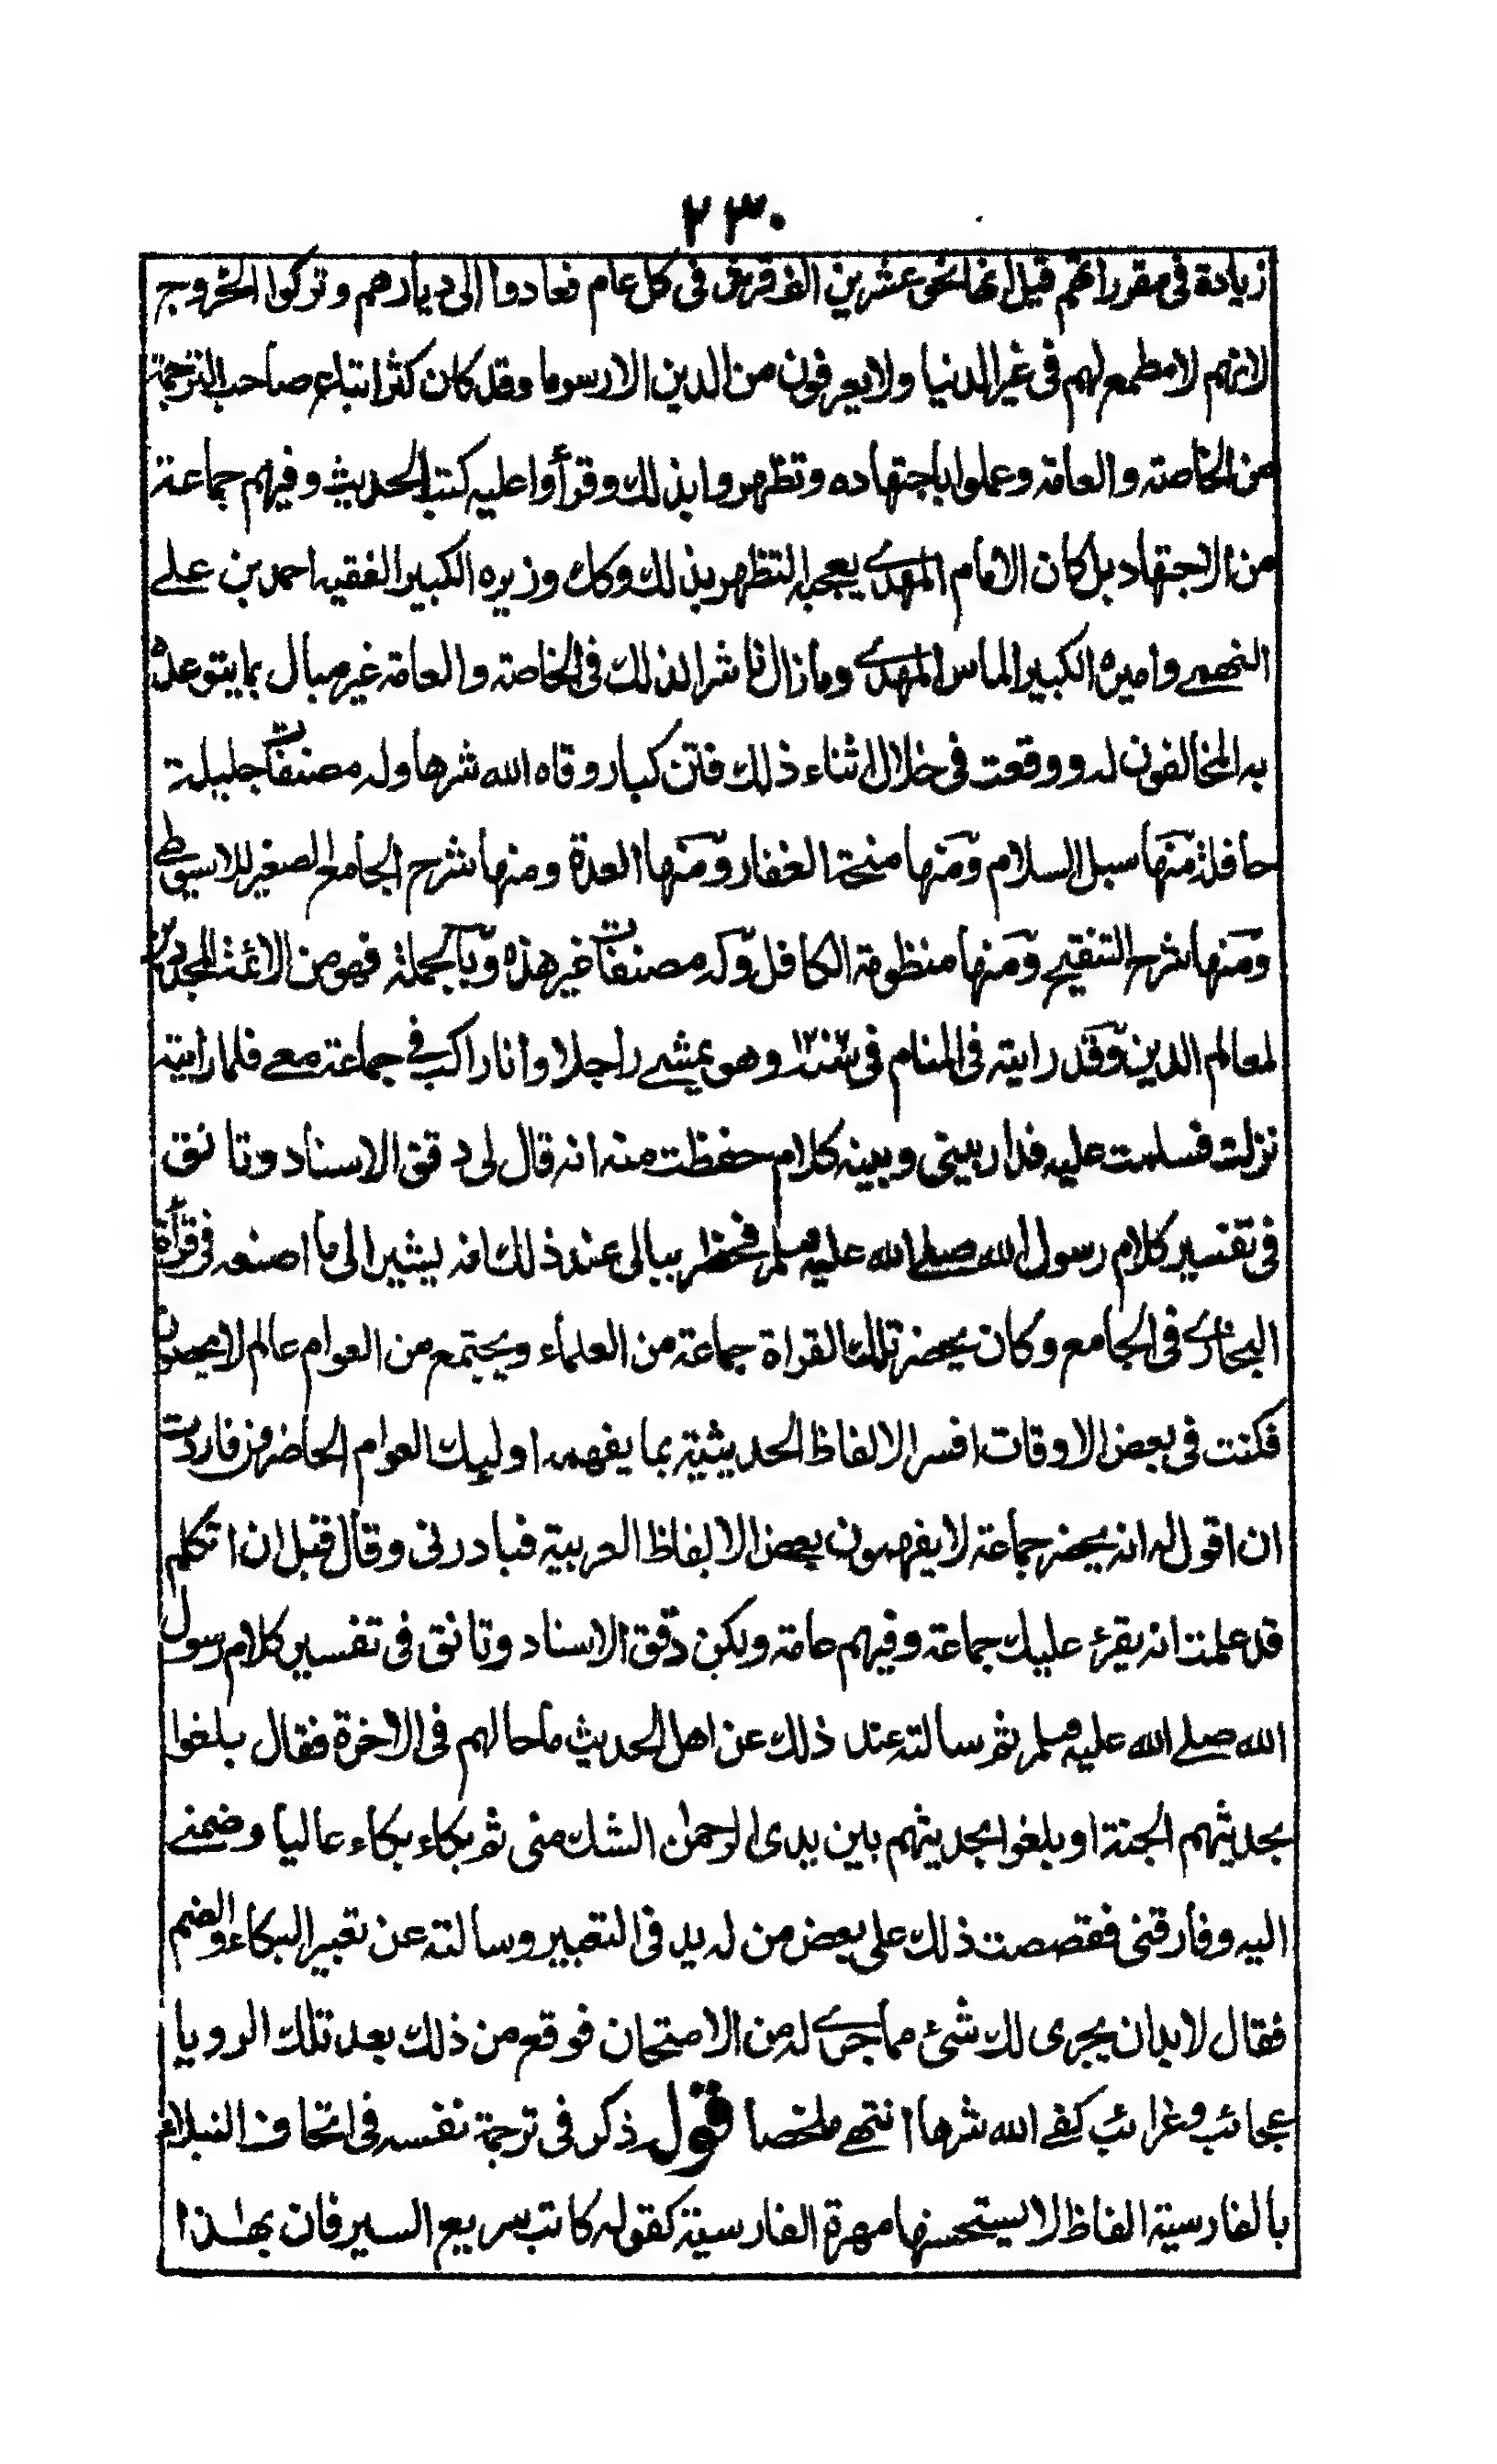 ٢٣٠
زيادة في مقرراتهم قيل انها نحو عشرين الف قرش في كل عام فعادوا الى ديارهم وتركوا الخروج
لانهم لا مطمع لهم في غير الدنيا ولا يعرفون من الدين الا رسوما وقد كان كثر اتباع صاحب الترجمة
من الخاصة والعامة وعملوا باجتهاده وتظهروا بذلك وقرأوا عليه كتب الحديث وفيهم جماعة
من الاجتهاد بل كان الامام المهدي يعجبه التظهر بذلك وكك وزيره الكبير الفقيه احمد بن علي
النهمي واميره الكبير الماس المهدي وما زال ناشرا لذلك في الخاصة والعامة غير مبال بما يتوعده
به المخالفون له ووقعت في خلال اثناء ذلك فتن كبار وقاه الله شرها وله مصنفات جليلة
حافلة منها سبل السلام ومنها منحة الغفار ومنها العدة ومنها شرح الجامع الصغير للاسيوطي
ومنها شرح التنقيح ومنها منظومة الكافل وله مصنفات غير هذه وبالجملة فهو من الائمة المجددين
لمعالم الدين وقد رايته في المنام في سنة وهو يمشي راجلا وانا راكب في جماعة معي فلما رايته
نزلت فسلمت عليه فدار بيني وبينه كلام حفظت منه انه قال لي دقق الاسناد وتانق
في تفسير كلام رسول الله صلى الله عليه وسلم فخطر ببالي عند ذلك انه يشير الى ما اصنعه في قرأة
البخاري في الجامع وكان يحضر تلك القراة جماعة من العلماء ويجتمع من العوام عالم لا يحصون
فكنت في بعض الاوقات افسر الالفاظ الحديثية بما يفهمه اوليك العوام الحاضرون فاردت
ان اقول له انه يحضر جماعة لا يفهمون بعض الالفاظ العربية فبادرني وقال قبل ان اتكلم
قد علمت انه يقرئ عليك جماعة وفيهم عامة ولكن دقق الاسناد وتانق في تفسير كلام رسول
الله صلى الله عليه وسلم ثم سالته عند ذلك عن اهل الحديث ما حالهم في الاخرة فقال بلغوا
بحديثهم الجنة او بلغوا بحديثهم بين يدى الرحمن الشك مني ثم بكاء بكاء عاليا وضمني
اليه وفارقني فقصصت ذلك على بعض من له يد في التعبير وسالته عن تعبير البكاء والضم
فقال لا بد ان يجرى لك شئ مما جرى له من الامتحان فوقع من ذلك بعد تلك الرويا
عجائب وغرائب كفى الله شرها انتهى ملخصا قوله ذكر في ترجمة نفسه في اتحاف النبلاء
بالفارسية الفاظ لا يستحسنها مهرة الفارسية كقوله كاتب سريع السير فان بهذا